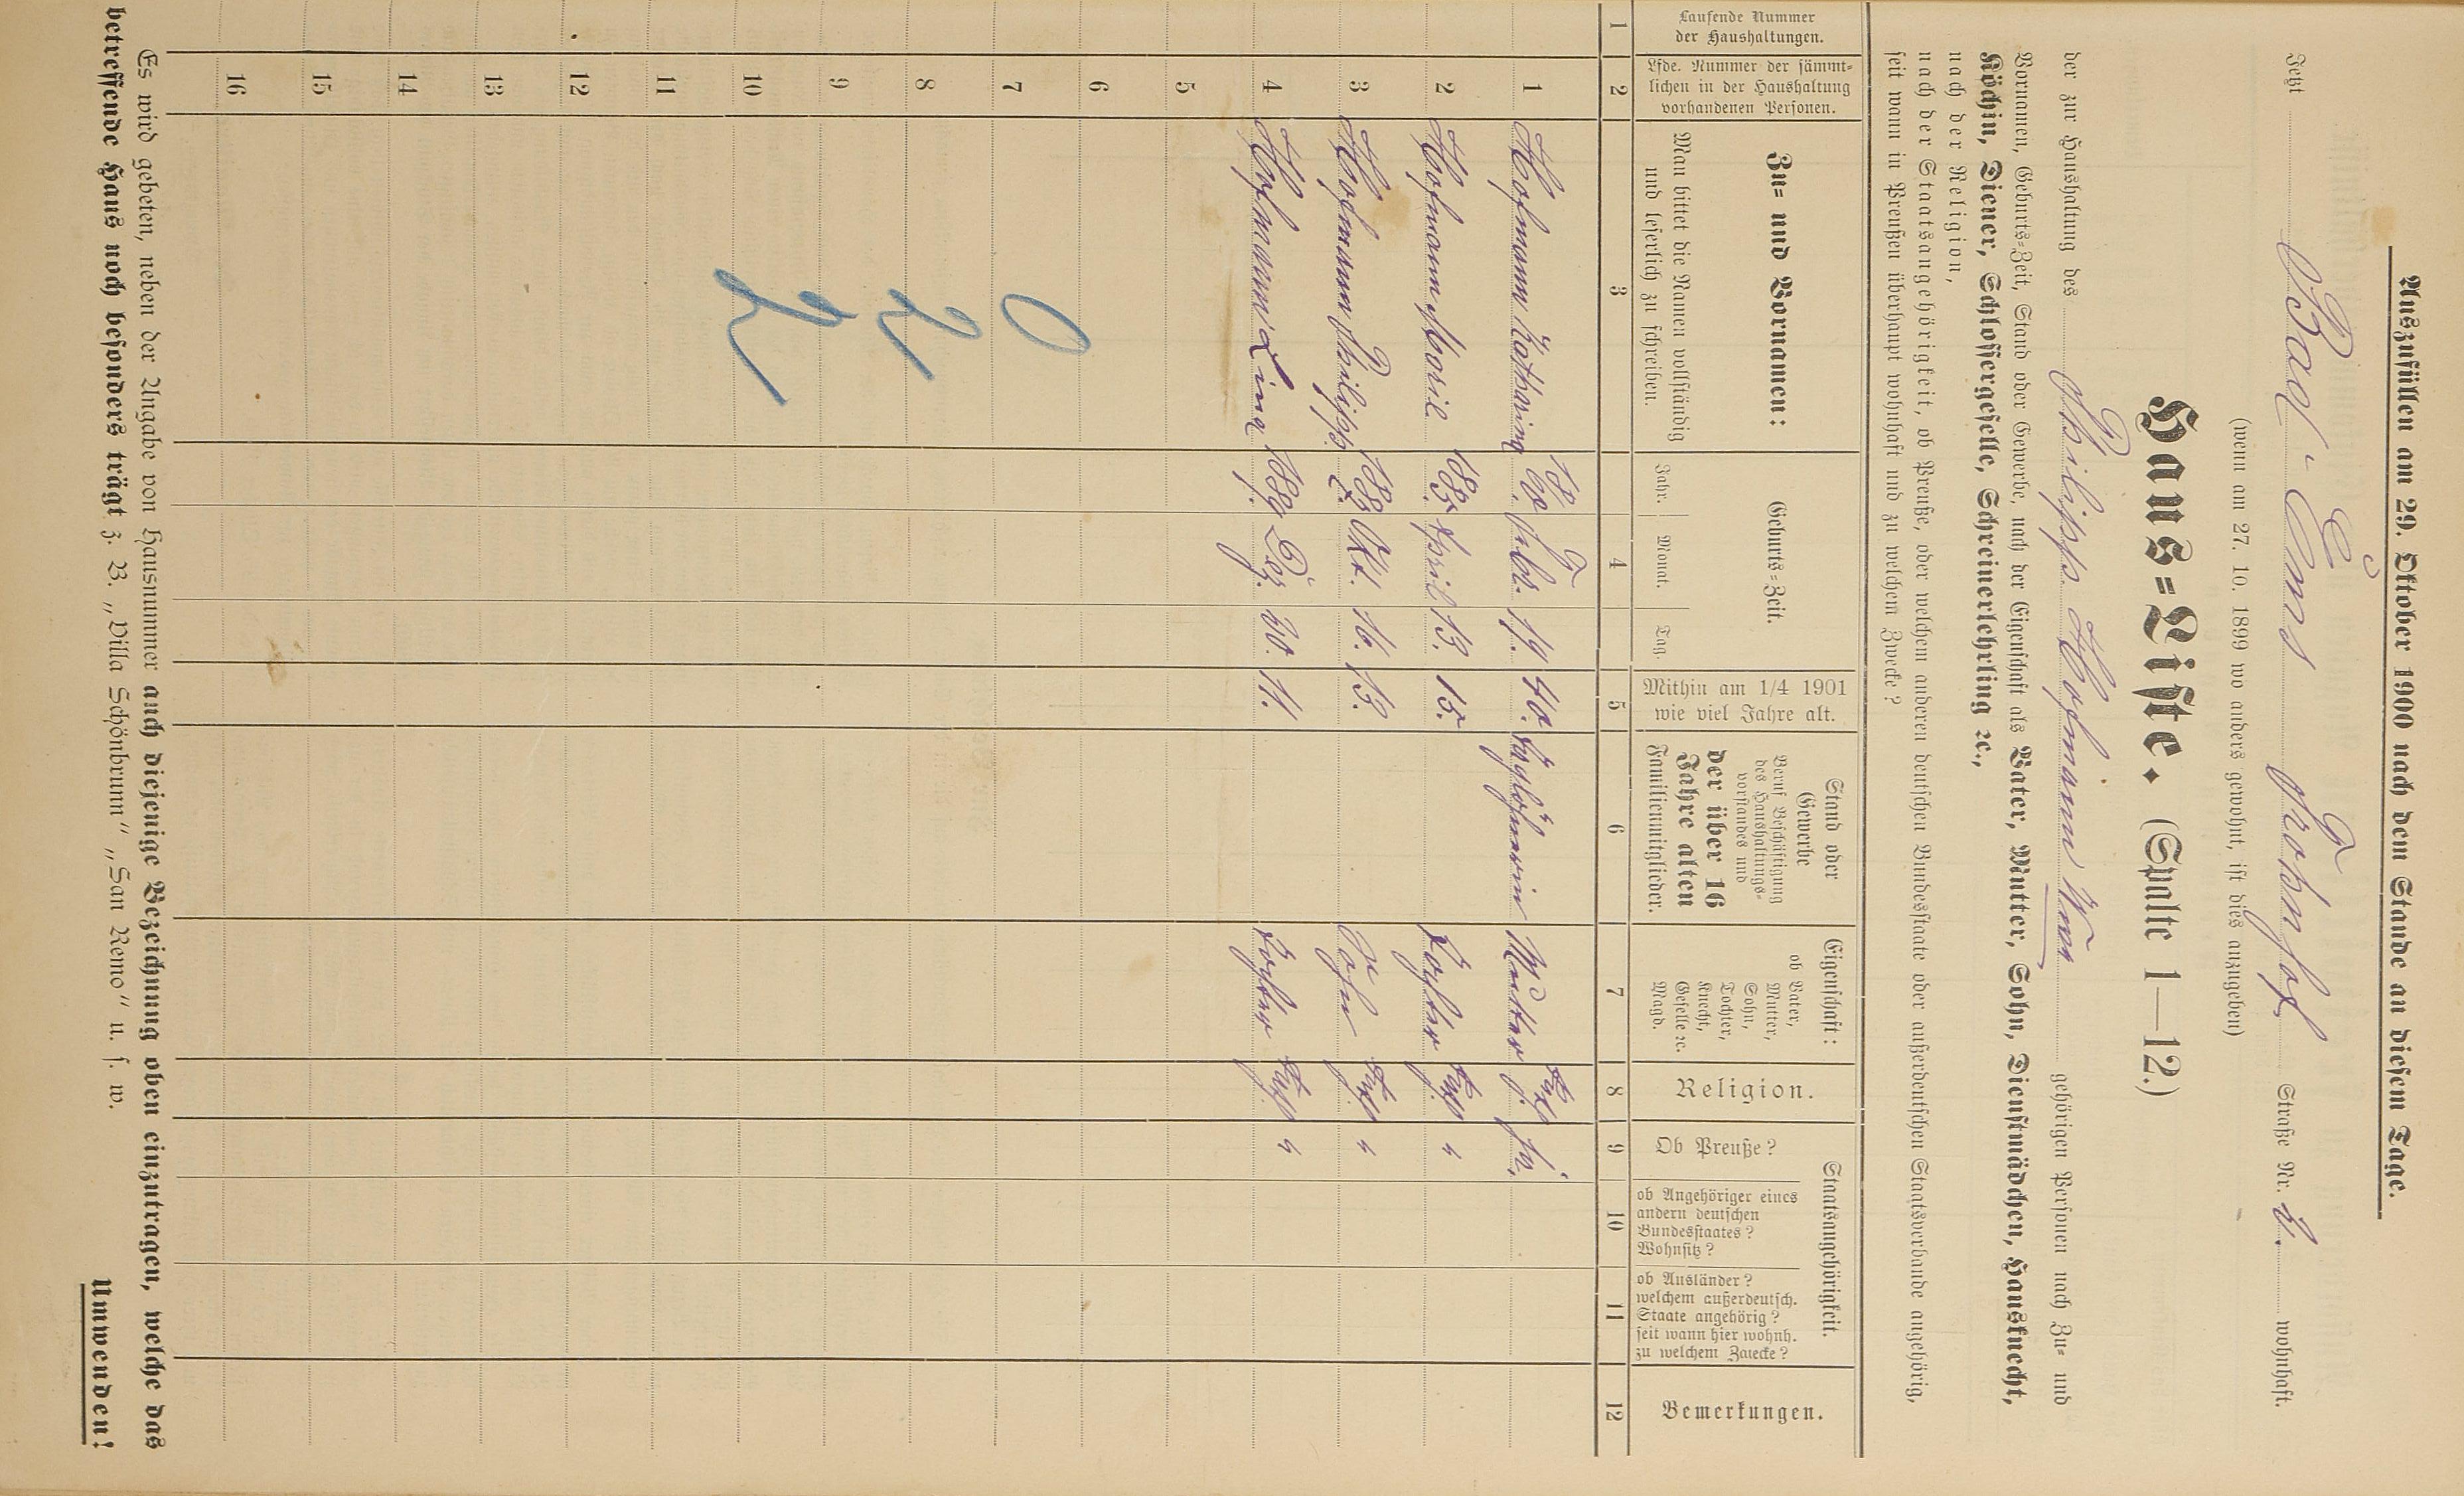 Auszufüllen am 29. Oktober 1900 nach dem Stande an diesem Tage.
Jetzt Bad-Ems Straße Nr. wohnhaft.
(wenn am 27. 10. 1899 wo anders gewohnt, ist dies anzugeben)
Haus=Liste. (Spalte 1—12.)
der zur Haushaltung des Philipp Hofmann Wwe gehörigen Personen nach Zu= und
Vornamen, Geburts=Zeit, Stand oder Gewerbe, nach der Eigenschaft als Vater, Mutter, Sohn, Dienstmädchen, Hausknecht,
Köchin, Diener, Schlossergeselle, Schreinerlehrling ꝛc.,
nach der Religion,
nach der Staatsangehörigkeit, ob Preuße, oder welchem anderen deutschen Bundesstaate oder außerdeutschen Staatsverbande angehörig,
seit wann in Preußen überhaupt wohnhaft und zu welchem Zwecke?
Laufende Nummer
der Haushaltungen.
Lfde. Nummer der sämmt=
lichen in der Haushaltung
vorhandenen Personen.
Zu= und Vornamen:
Man bittet die Namen vollständig
und leserlich zu schreiben.
Geburts=Zeit.
Jahr. Monat. Tag.
Mithin am 1/4 1901
wie viel Jahre alt.
Stand oder
Gewerbe
Beruf Beschäftigung
des Haushaltungs=
vorstandes und
der über 16
Jahre alten
Familienmitglieder.
Eigenschaft:
ob Vater,
Mutter,
Sohn,
Tochter,
Knecht,
Geselle ꝛc.
Magd.
Religion.
Staatsangehörigkeit.
Ob Preuße?
ob Angehöriger eines
andern deutschen
Bundesstaates?
Wohnsitz?
ob Ausländer?
welchem außerdeutsch.
Staate angehörig?
seit wann hier wohnh.
zu welchem Zwecke?
Bemerkungen.
1 2 3 4 5 6 7 8 9 10 11 12
1 Hofmann Katharina 1860. Febr. 19. 40. Taglöhnerin Mutter ja.
2 Hofmann Marie 1885. April 13. 15. Tochter "
3 Hofmann Philipp 1887. Okt. 16. 13. Sohn "
4 Hofmann Lina 1889. Dez. 30. 11. Tochter "
5
6
7 0
8 2
9
10 2
11
12
13
14
15
16
Es wird gebeten, neben der Angabe von Hausnummer auch diejenige Bezeichnung oben einzutragen, welche das
betreffende Haus noch besonders trägt z. B. „Villa Schönbrunn“ „San Remo“ u. s. w.
Umwenden!